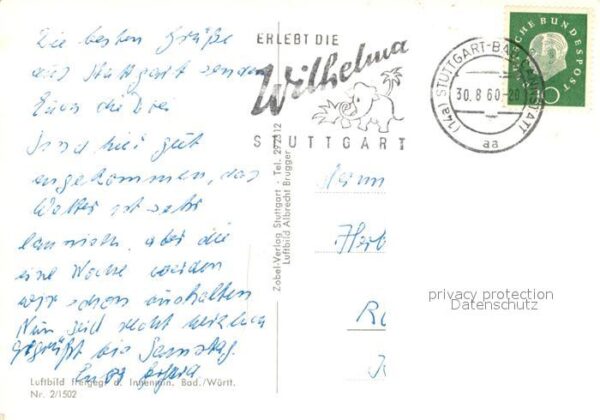 Die besten Grüße
aus Stuttgart senden
Euch die Drei
Sind hier gut
angekommen, das
Wetter ist sehr
launisch, aber die
eine Woche werden
wir schon aushalten
Nun seid recht herzlich
gegrüßt bis Samstag.
Luftbild freigeg. d. Innenmin. Bad./Württ.
Nr. 2/1502
Zobel-Verlag Stuttgart - Tel. 297312
Luftbild Albrecht Brugger
ERLEBT DIE
Wilhelma
STUTTGART
(14a) STUTTGART-BAD CANNSTATT
30.8.60-20
aa
DEUTSCHE BUNDESPOST
10
Herb
privacy protection
Datenschutz